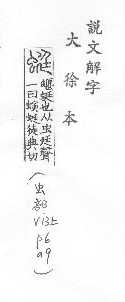 說文解字
大徐本
蜓
蝘蜓也从虫廷聲
一曰螾蜓徒典切
(虫部.
V13上
p6
a9)